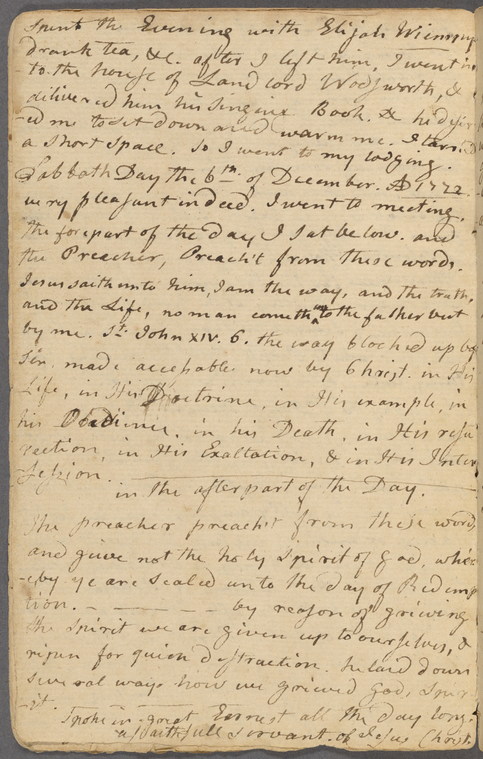 Spent the Evening with Elijah Wimpy
drank tea, &c. after I left him, I went in
to the house of Land lord Wodsworth, &
delivered him his Singing Book. & he desir
-ed me to set down and warm me. I tarr.d
a short space. So I went to my lodging.
Sabbath Day the 6th. of December. AD 1772
very pleasant indeed. I went to meeting.
the forepart of the day I sat below. and
the Preacher, Preach't from these words.
Jesus saith unto him, I am the way, and the truth,
and the Life, no man cometh unto the father but
by me. St. John XIV. 6. the way blocked up by
Sin. made acceptable now by Christ. in His
Life, in His Doctrine, in His example, in
his Obedience, in his Death, in His resu
rection, in His Exaltation, & in His Inter
-session.
in the after part of the Day.
The preacher preach't from these words
and grive not the holy Spirit of God, whire
-by ye are Sealed unto the day of Redemp
tion. - by reason of griving
the Spirit we are given up to ourselves, &
ripen for quick distraction. he laid down
several ways how we grieved God's Spir
-it.
Spoke in great Earnest all the day long.
a faithfull servant of Jesus Christ.